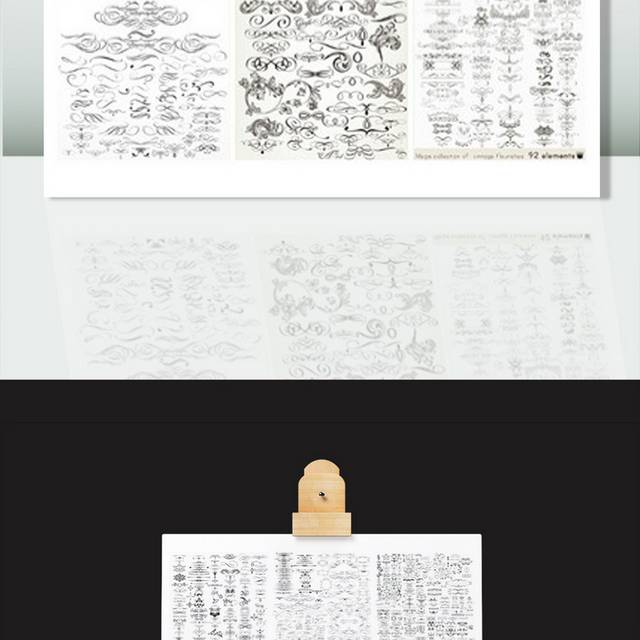 Mega collection of vintage flourishes 92 elements